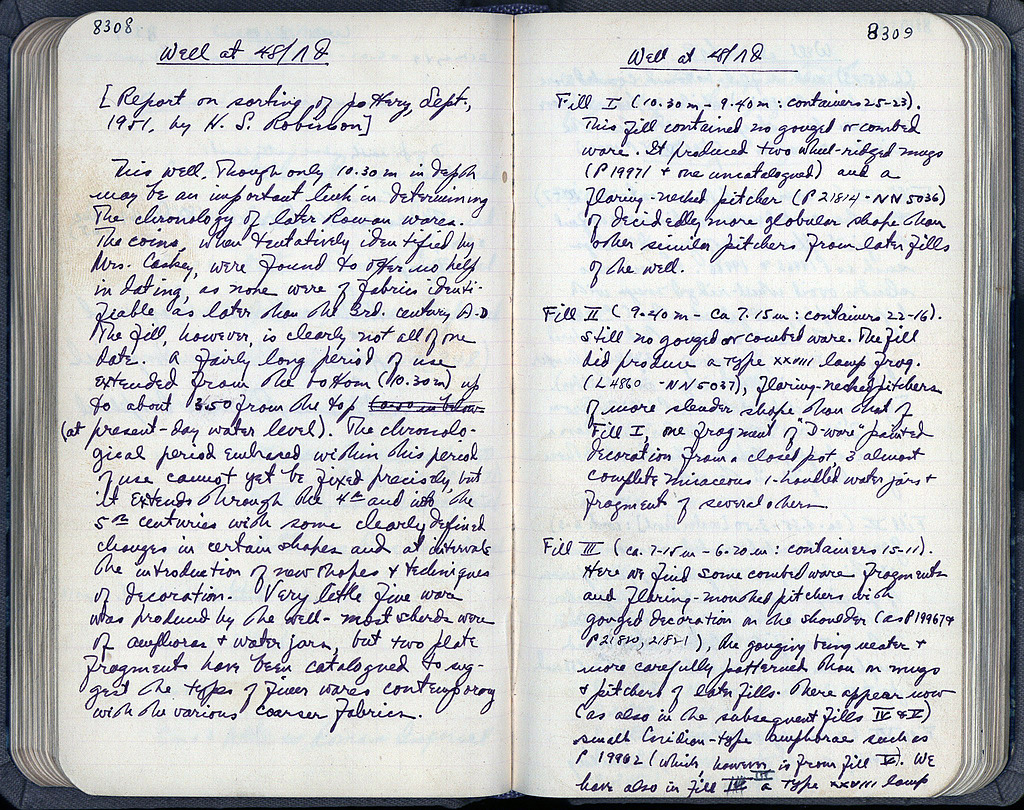 8308
Well at 48/ΛΘ
[Report on sorting of pottery, Sept.,
1951, by H. S. Robinson]
This well, though only 10.30 m in depth
may be an important link in determining
the chronology of later Roman wares.
The coins, when tentatively identified by
Mrs. Caskey, were found to offer no help
in dating, as none were of fabrics identi-
fiable as later than the 3rd. century A.D
The fill, however, is clearly not all of one
date. A fairly long period of use
extended from the bottom (10.30 m) up
to about 3.50 from the top
(at present-day water level). The chronolo-
gical period embraced within this period
of use cannot yet be fixed precisely, but
it extends through the 4th and into the
5th centuries with some clearly defined
changes in certain shapes and at intervals
the introduction of new shapes & techniques
of decoration. Very little fine ware
was produced by the well - most sherds were
of amphoras & water jars, but two plate
fragments have been catalogued to sug-
gest the types of finer wares contemporary
with the various coarser fabrics.
8309
Well at 48/ΛΘ
Fill I (10.30 m - 9.40 m: containers 25-23).
This fill contained no gouged or combed
ware. It produced two wheel-ridged mugs
(P 19971 + one uncatalogued) and a
flaring-necked pitcher (P 21814 - NN 5036)
of decidedly more globular shape than
other similar pitchers from later fills
of the well.
Fill II (9.40 m - ca 7.15 m: containers 22-16).
Still no gouged or combed ware. The fill
did produce a Type XXVIII lamp frag.
(L 4860 - NN 5037), flaring-necked pitchers
of more slender shape than that of
Fill I, one fragment of "D-ware" painted
decoration from a closed pot, 3 almost
complete micaceous 1-handled water jars +
fragment of several others.
Fill III (ca. 7.15 m - 6.20 m: containers 15-11).
Here we find some combed ware fragments
and flaring-mouthed pitchers with
gouged decoration on the shoulder (as P 19967 +
P 21820, 21821), the gouging being neater +
more carefully patterned than on mugs
& pitchers of later fills. There appear now
(as also in the subsequent fills IV & V)
small Cnidian-type amphorae such as
P 19962 (which, however, is from fill V). We
have also in fill III a Type XXVIII lamp